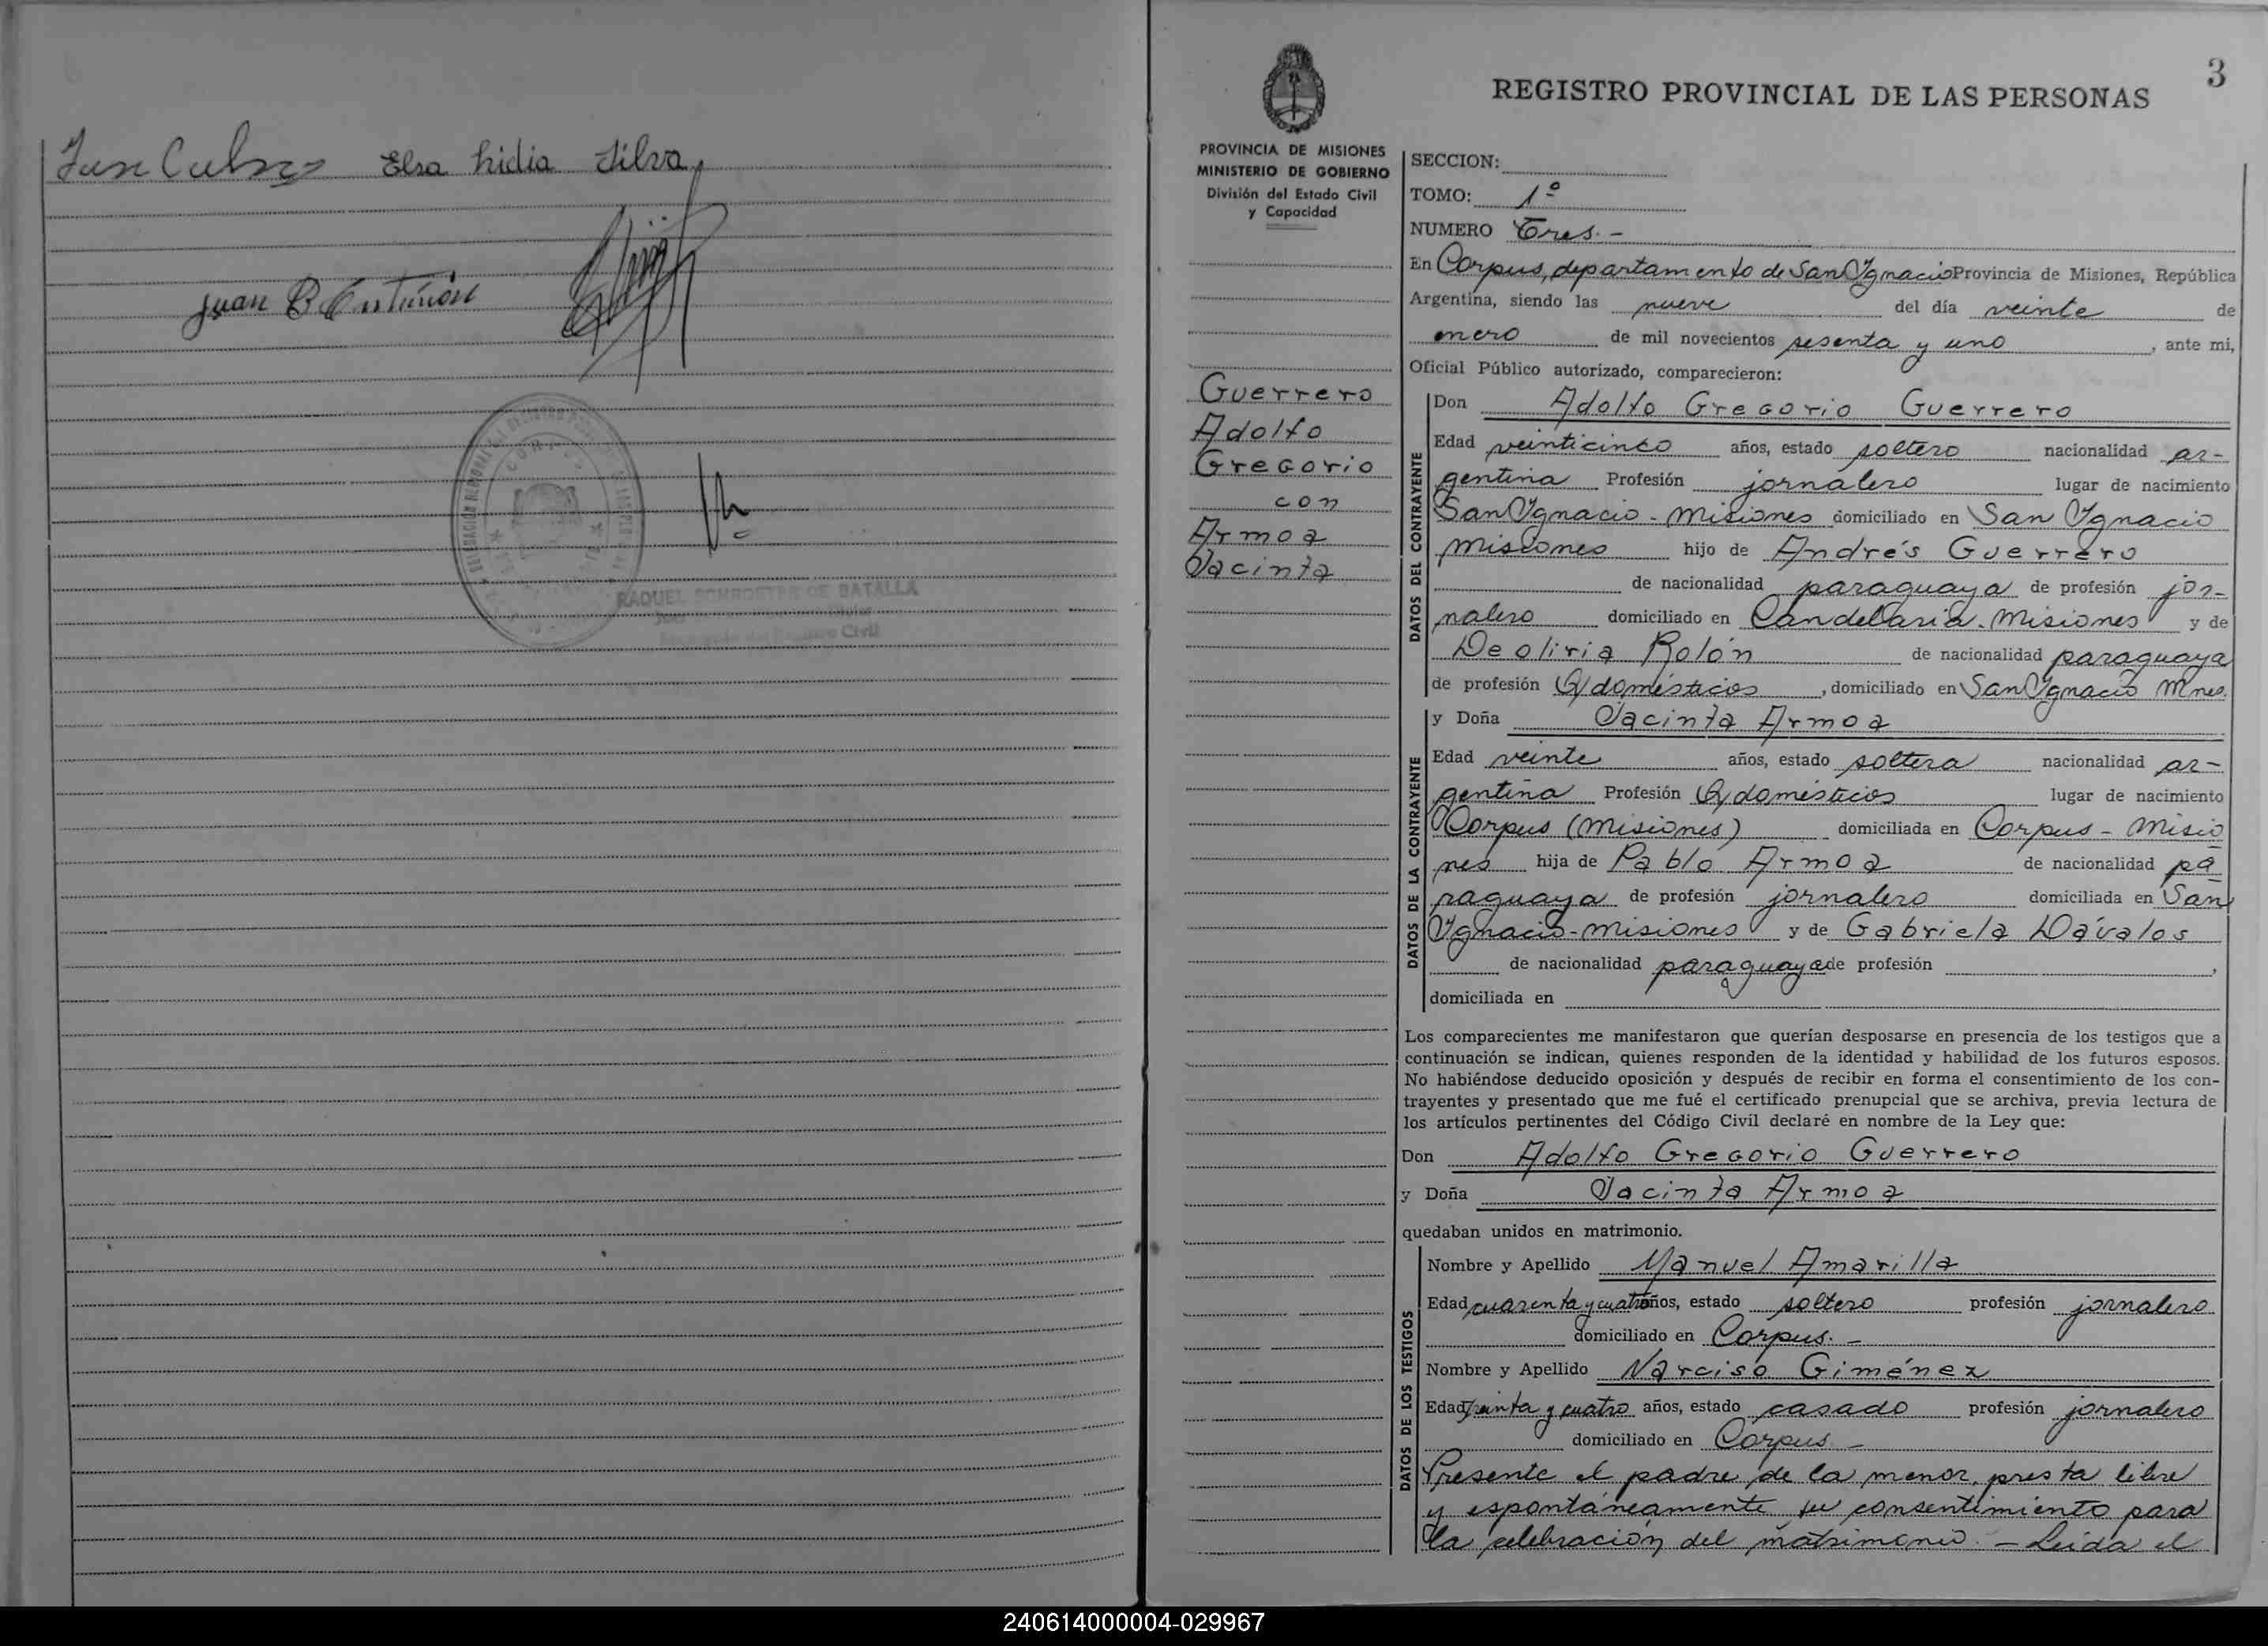 Elsa Lidia Silva
Juan B
RAQUEL SCHROETER DE BATALLA
Civil
3
REGISTRO PROVINCIAL DE LAS PERSONAS
PROVINCIA DE MISIONES
MINISTERIO DE GOBIERNO
División del Estado Civil
y Capacidad
Guerrero
Adolfo
Gregorio
con
Armoa
Jacinta
SECCION:
TOMO: 1º
NUMERO Tres.-
En Corpus, departamento de San Ignacio Provincia de Misiones, República
Argentina, siendo las nueve del día veinte de
enero de mil novecientos sesenta y uno, ante mi,
Oficial Público autorizado, comparecieron:
DATOS DEL CONTRAYENTE
Don Adolfo Gregorio Guerrero
Edad veinticinco años, estado soltero nacionalidad ar-
gentina Profesión jornalero lugar de nacimiento
San Ignacio - Misiones domiciliado en San Ignacio
misiones hijo de Andrés Guerrero
de nacionalidad paraguaya de profesión jor-
nalero domiciliado en Candelaria. Misiones y de
Deoliria Rolón de nacionalidad paraguaya
de profesión Q/domésticos, domiciliado en San Ignacio Mnes.
DATOS DE LA CONTRAYENTE
y Doña Jacinta Armoa
Edad veinte años, estado soltera nacionalidad ar-
gentina Profesión Q/domésticos lugar de nacimiento
Corpus (Misiones) domiciliada en Corpus - Misio
nes hija de Pablo Armoa de nacionalidad pa
raguaya de profesión jornalero domiciliada en San
Ignacio - misiones y de Gabriela Dávalos
de nacionalidad paraguaya de profesión ,
domiciliada en
Los comparecientes me manifestaron que querían desposarse en presencia de los testigos que a
continuación se indican, quienes responden de la identidad y habilidad de los futuros esposos.
No habiéndose deducido oposición y después de recibir en forma el consentimiento de los con-
trayentes y presentado que me fué el certificado prenupcial que se archiva, previa lectura de
los artículos pertinentes del Código Civil declaré en nombre de la Ley que:
Don Adolfo Gregorio Guerrero
y Doña Jacinta Armoa
quedaban unidos en matrimonio.
DATOS DE LOS TESTIGOS
Nombre y Apellido Manuel Amarilla
Edad cuarenta y cuatro años, estado soltero profesión jornalero
domiciliado en Corpus.-
Nombre y Apellido Narciso Giménez
Edad treinta y cuatro años, estado casado profesión jornalero
domiciliado en Corpus -
Presente el padre de la menor, presta libre
y espontáneamente su consentimiento para
la celebración del matrimonio. - Leída el
240614000004-029967